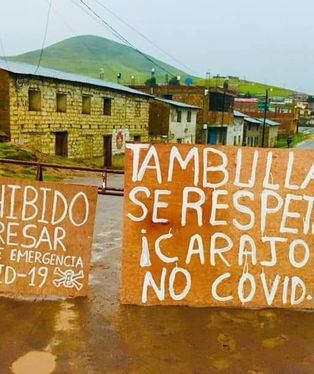 HIBIDO
RESAR
E EMERGENCIA
ID-19
TAMBULLA
SE RESPETA
¡CARAJO
NO COVID.